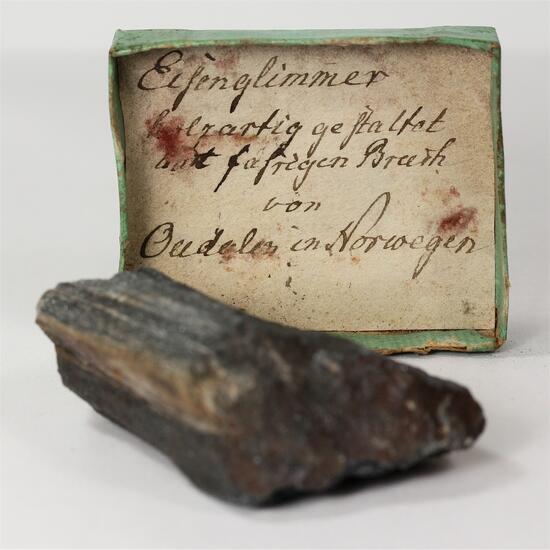 Eisenglimmer
holzartig gestaltet
mit fasrigen Bruch
von
Oudalen in Norwegen